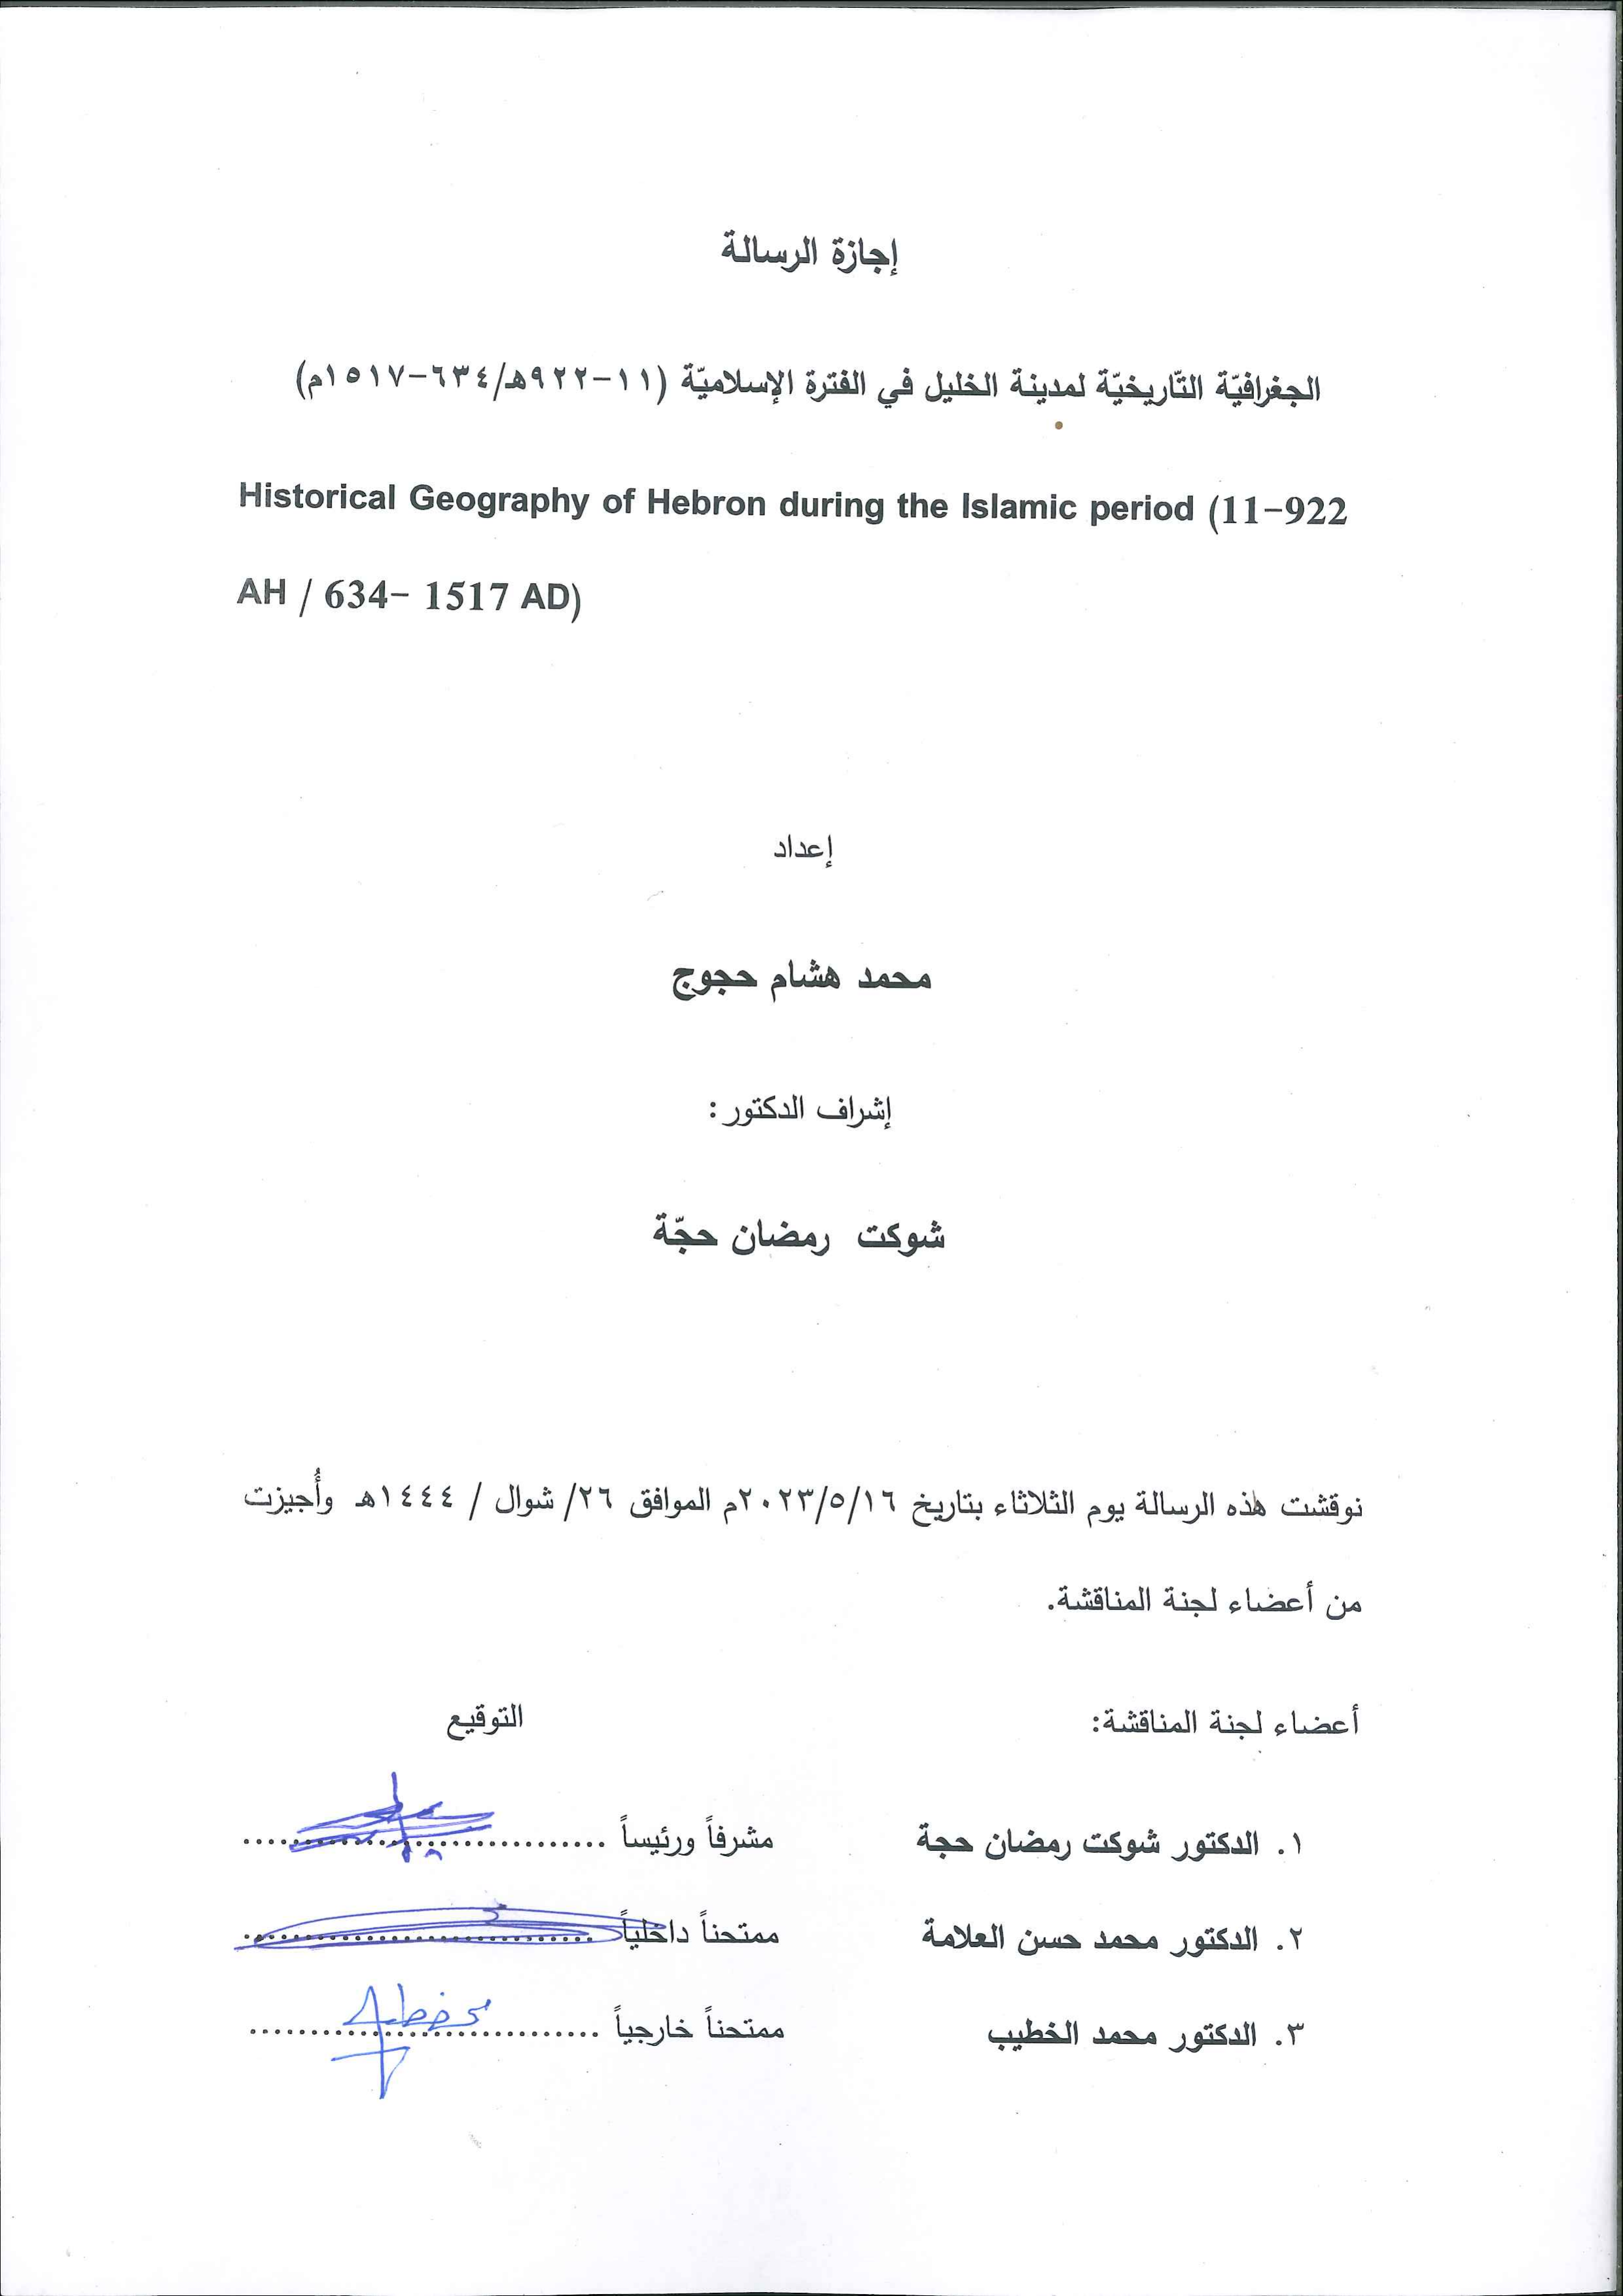 إجازة الرسالة
الجغرافيّة التّاريخيّة لمدينة الخليل في الفترة الإسلاميّة (١١-٩٢٢هـ/٦٣٤-١٥١٧م)
Historical Geography of Hebron during the Islamic period (11-922
AH / 634- 1517 AD)
إعداد
محمد هشام حجوج
إشراف الدكتور:
شوكت رمضان حجّة
نوقشت هذه الرسالة يوم الثلاثاء بتاريخ ٢٠٢٣/٥/١٦م الموافق ٢٦/ شوال / ١٤٤٤هـ وأُجيزت
من أعضاء لجنة المناقشة.
أعضاء لجنة المناقشة: التوقيع
١. الدكتور شوكت رمضان حجة مشرفاً ورئيساً ..............................
٢. الدكتور محمد حسن العلامة ممتحناً داخلياً ..............................
٣. الدكتور محمد الخطيب ممتحناً خارجياً ..............................